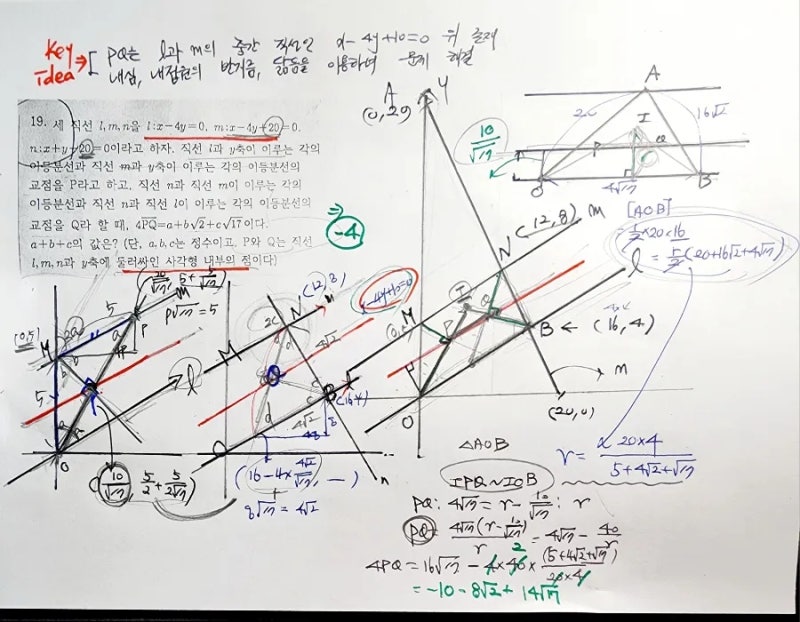 Key
idea ⇒ [ PQ는 l과 m의 중간 직선인 x-4y+10=0 위 존재
내심, 내접원의 반지름, 닮음을 이용하여 문제 해결
19. 세 직선 l, m, n을 l:x-4y=0, m:x-4y+20=0,
n:x+y-20=0이라고 하자. 직선 l과 y축이 이루는 각의
이등분선과 직선 m과 y축이 이루는 각의 이등분선의
교점을 P라고 하고, 직선 n과 직선 m이 이루는 각의
이등분선과 직선 n과 직선 l이 이루는 각의 이등분선의
교점을 Q라 할 때, 4PQ=a+b√2+c√17이다.
a+b+c의 값은? (단, a, b, c는 정수이고, P와 Q는 직선
l, m, n과 y축에 둘러싸인 사각형 내부의 점이다)
⇒ -4
A
y
(0,20)
N (12,8) m
l
M
I
P
Q
B ← (16,4)
O
(20,0)
m
A
20
16√2
I
P
Q
10/√17
O
4√17
B
[AOB]
½×20×16
= r/2 (20+16√2+4√17)
r = 20×4 / 5+4√2+√17
(20/√17, 5+5/√17)
5
m
P√17=5
(0,5)
M
2a
a
P
5
l
O
(10/√17, 5/2+5/2√17)
N (12,8)
m
-4y+10=0
M
4√2
Q
B (16,4)
4√2
O
n
(16-4×4√2/√17, —)
8√17=4√2
△AOB
IPQ∽IOB
PQ: 4√17 = r-10/√17 : r
PQ = 4√17(r-10/√17) / r = 4√17 - 40/r
4PQ = 16√17 - 4×40× (5+4√2+√17) / 20×4
= -10-8√2+14√17